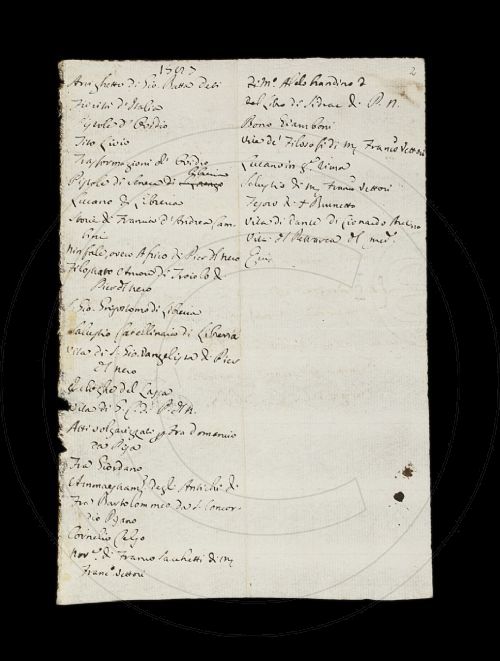 1597
2
Aringhetto di Gio. Batta Deti
Fioriti d'Italia
Pistole d'Ovidio
Tito Livio
Trasformazioni d'Ovidio
Pistole di Seneca di Libreria
Lucano di Libreria
Storie di Franco d'Andrea Cam-
bini
Ninfale, overo Africo di Pier del nero
Filostrato Amor di Troiolo di
Pier del nero
S. Gio. Grisostomo di Libreria
Salustio Catellinario di Libreria
Vita di S. Gio. Vangelista di Pier
del nero
del Lasca
Vita di S. P. del N.
Atti volgarizzati p fra Domenico
da Pisa
Fra Giordano
Ammaestramti degli Antichi di
Fra Bartolommeo da S. Concor-
dio Pisano
Cornelio Celso
Novle di Franco Sacchetti di m
Franco Vettori
Mo Aldobrandino 2
Dal Libro di Sidrac di P. N.
Bono Giamboni
Vite de' Filosofi di m Franco Vettori
Lucano in rima
Salustio di m Franco Vettori
Tesoro di S. Brunetto
Vita di Dante di Lionardo Aretino
Vita del Petrarca del medo